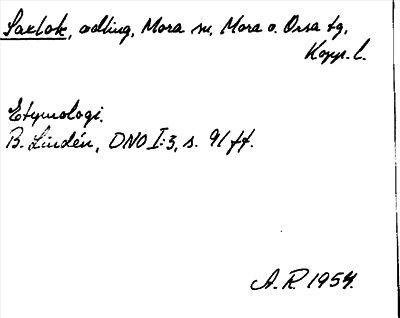 Saxlok, odling, Mora sn, Mora o. Orsa tg,
Kopp. l.
Etymologi.
B. Lindén, DNO I:3, s. 91 ff.
A.R. 1954.